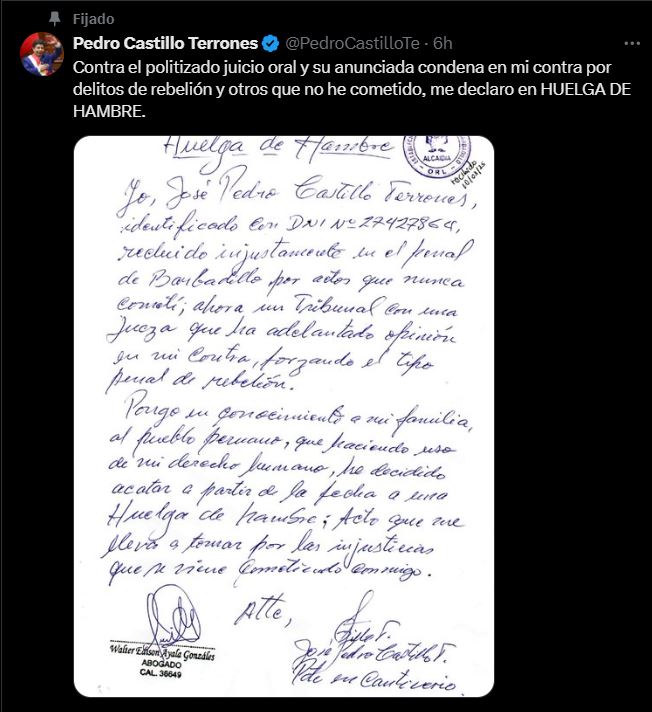 Fijado
Pedro Castillo Terrones @PedroCastilloTe · 6h
Contra el politizado juicio oral y su anunciada condena en mi contra por
delitos de rebelión y otros que no he cometido, me declaro en HUELGA DE
HAMBRE.
Huelga de Hambre
ALCAIDIA
ORL
Yo, José Pedro Castillo Terrones,
identificado con DNI Nº 27427864,
recluido injustamente en el penal
de Barbadillo por actos que nunca
cometí; ahora un Tribunal con una
Jueza que ha adelantado opinión
en mi contra, forzando el tipo
penal de rebelión.
Pongo en conocimiento a mi familia,
al pueblo peruano, que haciendo uso
de mi derecho humano, he decidido
acatar a partir de la fecha a una
Huelga de hambre; Acto que me
lleva a tomar por las injusticias
que se viene cometiendo conmigo.
Atte,
Walter Edison Ayala Gonzáles
ABOGADO
CAL. 36649
José Pedro Castillo T.
Pdte en Cautiverio.